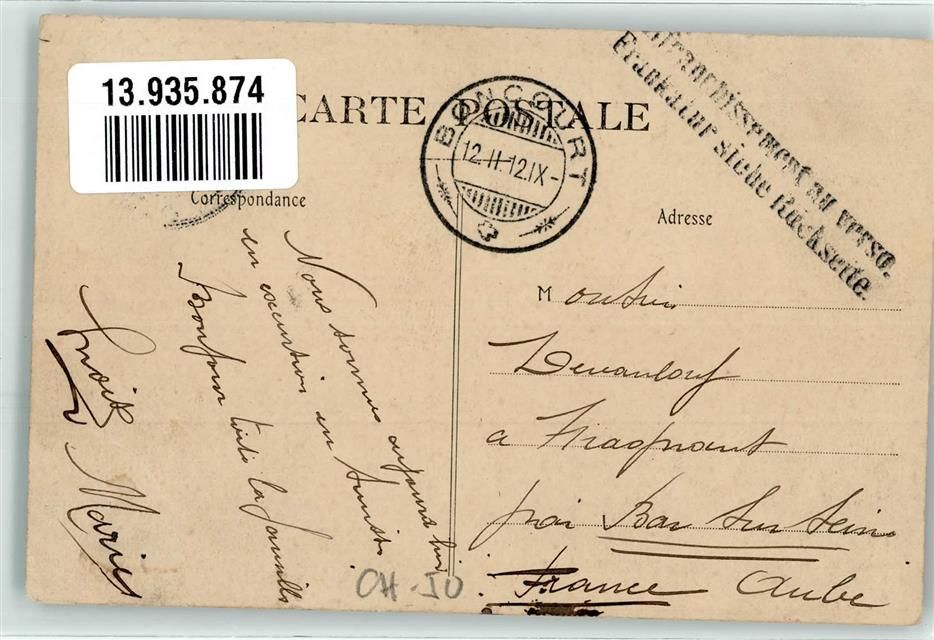 13.935.874
CARTE POSTALE
BONCOURT
12.II.12.IX-
Affranchissement au verso.
Frankatur siehe Rückseite.
Correspondance
Adresse
Nous sommes aujourd'hui
en excurtion en Suisse
Bonjour toute la famille
Marie
Monsieur
a
par Bar sur Seine
France Aube
CH-JU